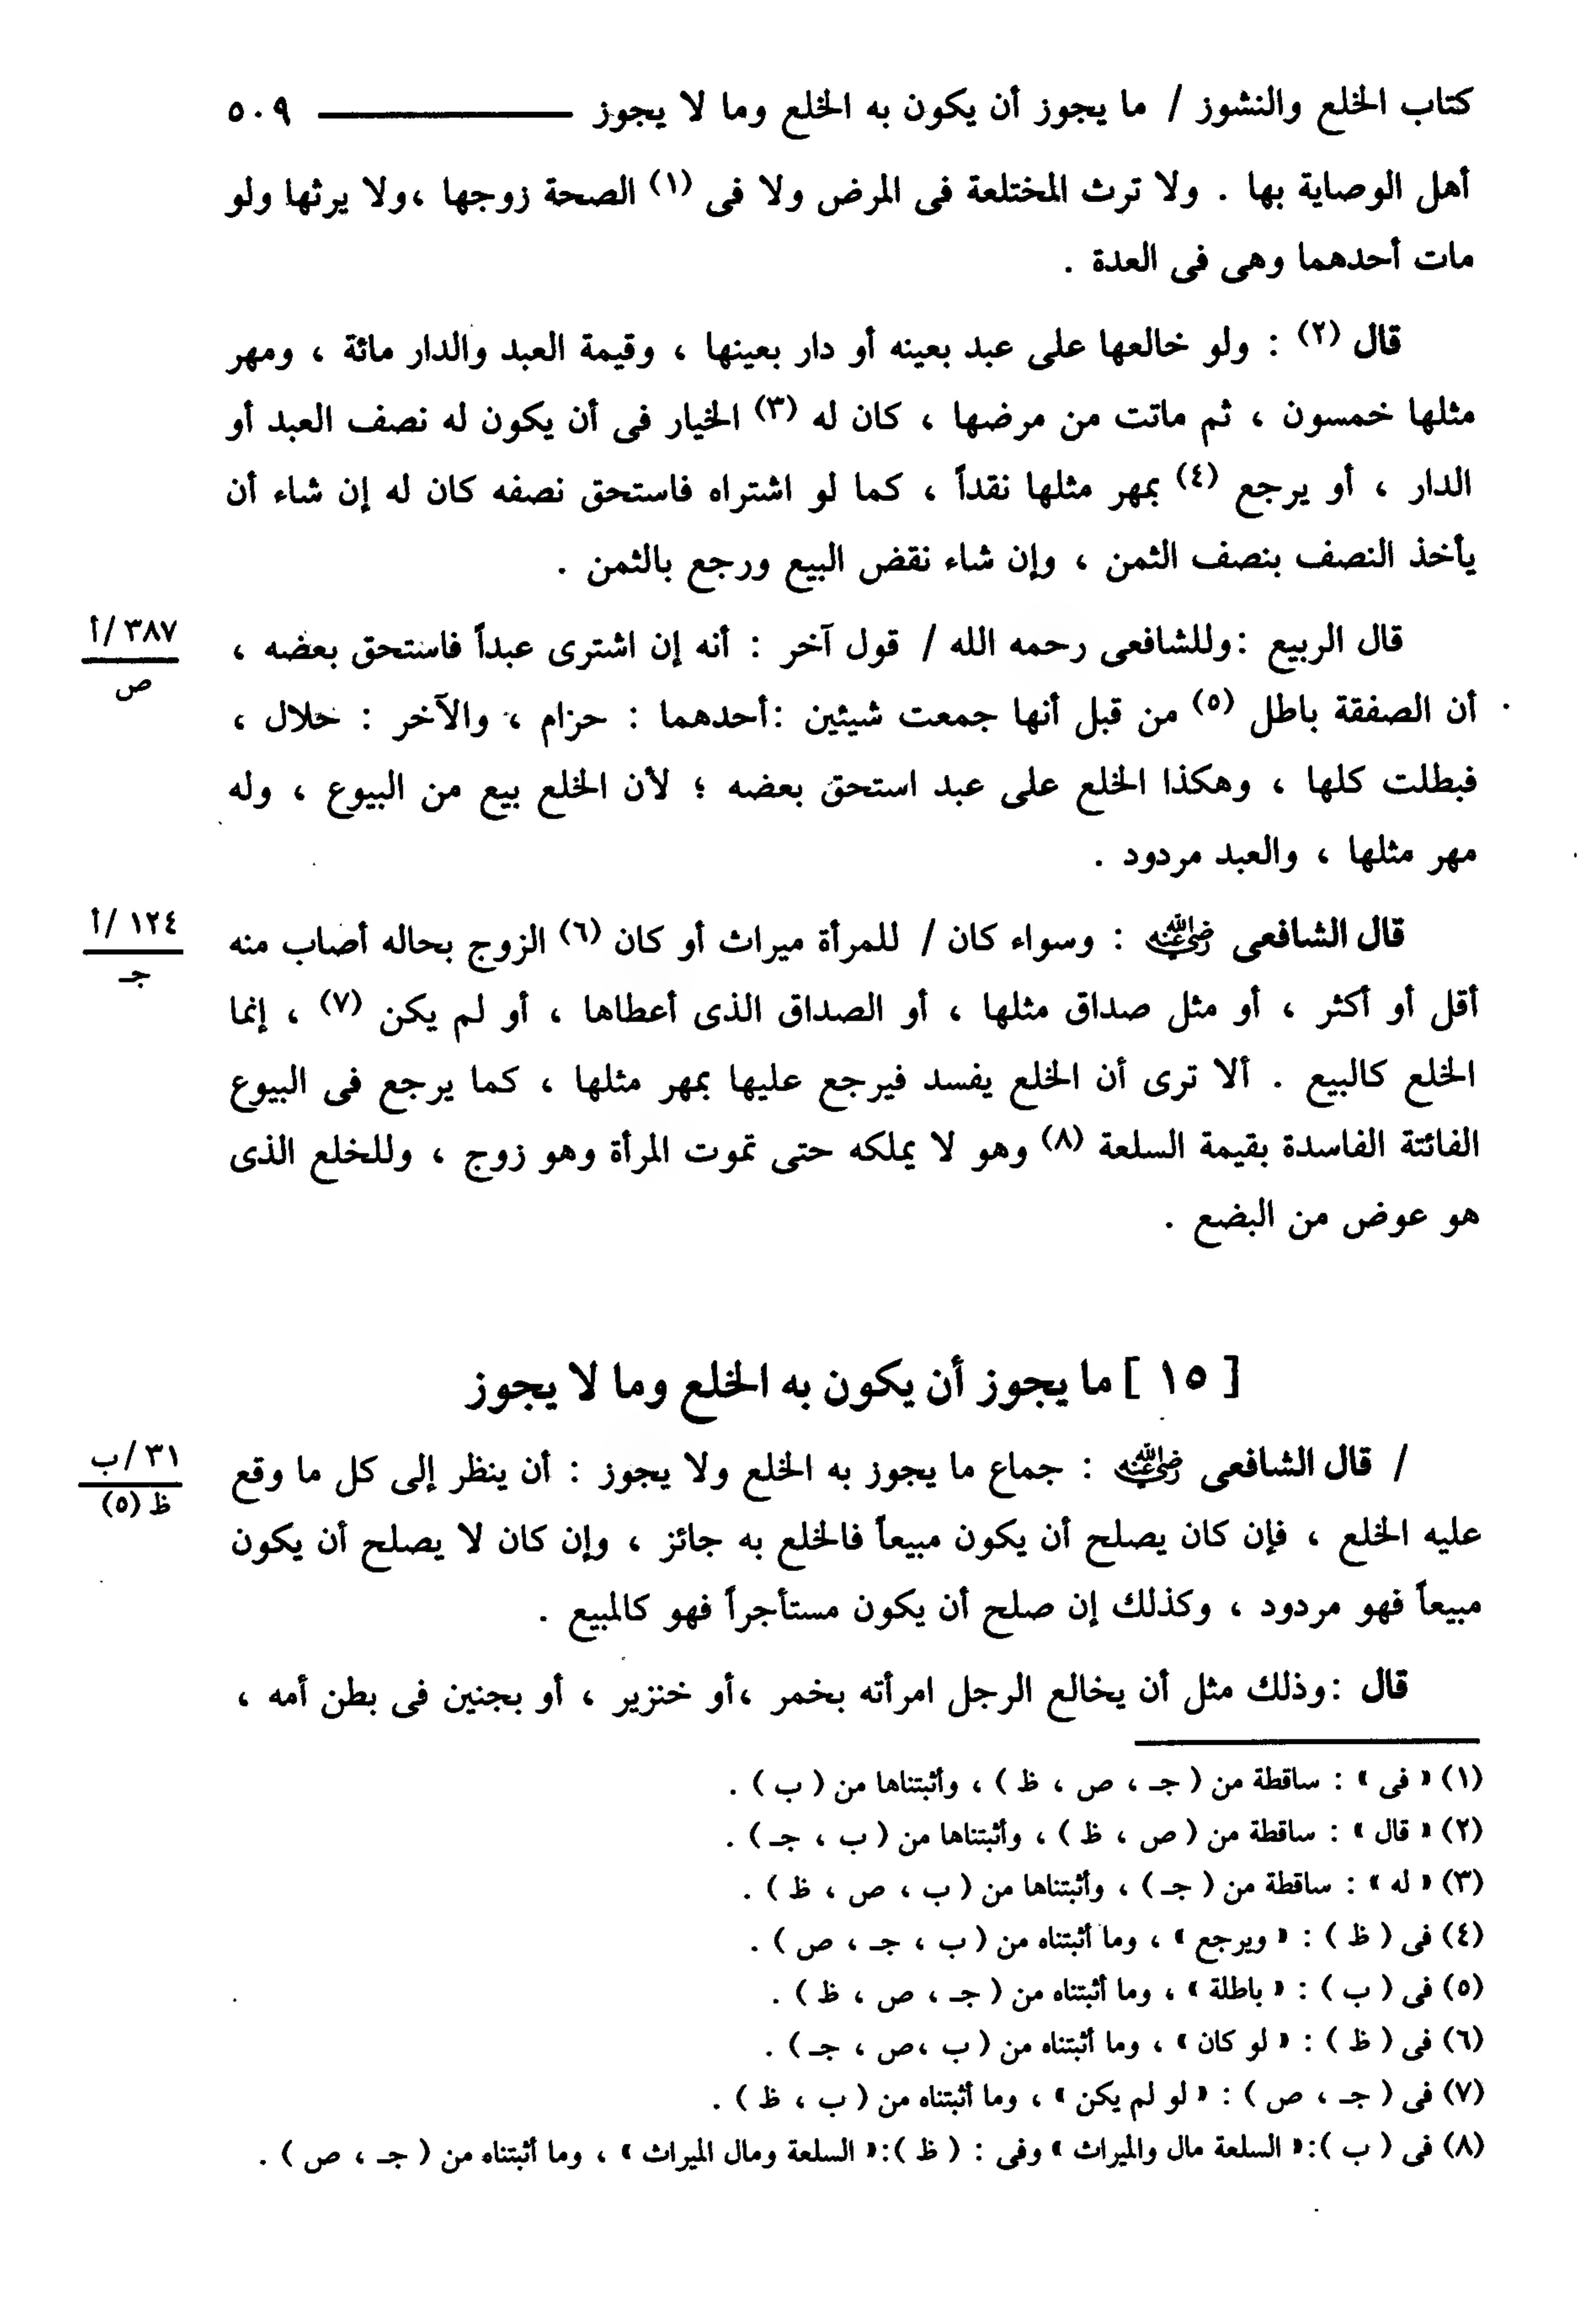 كتاب الخلع والنشوز / ما يجوز أن يكون به الخلع وما لا يجوز ــــــــــ ٥٠٩
أهل الوصاية بها . ولا ترث المختلعة فى المرض ولا فى (١) الصحة زوجها ،ولا يرثها ولو
مات أحدهما وهى فى العدة .
قال (٢) : ولو خالعها على عبد بعينه أو دار بعينها ، وقيمة العبد والدار مائة ، ومهر
مثلها خمسون ، ثم ماتت من مرضها ، كان له (٣) الخيار فى أن يكون له نصف العبد أو
الدار ، أو يرجع (٤) بمهر مثلها نقداً ، كما لو اشتراه فاستحق نصفه كان له إن شاء أن
يأخذ النصف بنصف الثمن ، وإن شاء نقض البيع ورجع بالثمن .
قال الربيع :وللشافعى رحمه الله / قول آخر : أنه إن اشترى عبداً فاستحق بعضه ،
٣٨٧/أ
ص
أن الصفقة باطل (٥) من قبل أنها جمعت شيئين :أحدهما : حرام ، والآخر : حلال ،
فبطلت كلها ، وهكذا الخلع على عبد استحق بعضه ؛ لأن الخلع بيع من البيوع ، وله
مهر مثلها ، والعبد مردود .
قال الشافعى رضي الله عنه : وسواء كان / للمرأة ميراث أو كان (٦) الزوج بحاله أصاب منه
١٢٤/أ
جـ
أقل أو أكثر ، أو مثل صداق مثلها ، أو الصداق الذى أعطاها ، أو لم يكن (٧) ، إنما
الخلع كالبيع . ألا ترى أن الخلع يفسد فيرجع عليها بمهر مثلها ، كما يرجع فى البيوع
الفائتة الفاسدة بقيمة السلعة (٨) وهو لا يملكه حتى تموت المرأة وهو زوج ، وللخلع الذى
هو عوض من البضع .
[ ١٥ ] ما يجوز أن يكون به الخلع وما لا يجوز
/ قال الشافعى رضي الله عنه : جماع ما يجوز به الخلع ولا يجوز : أن ينظر إلى كل ما وقع
٣١/ب
ظ (٥)
عليه الخلع ، فإن كان يصلح أن يكون مبيعاً فالخلع به جائز ، وإن كان لا يصلح أن يكون
مبيعاً فهو مردود ، وكذلك إن صلح أن يكون مستأجراً فهو كالمبيع .
قال :وذلك مثل أن يخالع الرجل امرأته بخمر ،أو خنزير ، أو بجنين فى بطن أمه ،
(١) « فى » : ساقطة من ( جـ ، ص ، ظ ) ، وأثبتناها من ( ب ) .
(٢) « قال » : ساقطة من ( ص ، ظ ) ، وأثبتناها من ( ب ، جـ ) .
(٣) « له » : ساقطة من ( جـ ) ، وأثبتناها من ( ب ، ص ، ظ ) .
(٤) فى ( ظ ) : « ويرجع » ، وما أثبتناه من ( ب ، جـ ، ص ) .
(٥) فى ( ب ) : « باطلة » ، وما أثبتناه من ( جـ ، ص ، ظ ) .
(٦) فى ( ظ ) : « لو كان » ، وما أثبتناه من ( ب ،ص ، جـ ) .
(٧) فى ( جـ ، ص ) : « لو لم يكن » ، وما أثبتناه من ( ب ، ظ ) .
(٨) فى ( ب ):« السلعة مال والميراث » وفى : ( ظ ):« السلعة ومال الميراث » ، وما أثبتناه من ( جـ ، ص ) .